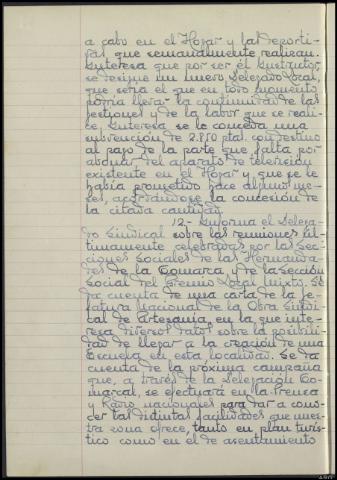 a cabo en el Hogar y las deporti-
vas que semanalmente realizan.
Interesa que por ser él Instructor,
se designe un nuevo Delegado local,
que sería el que en todo momento
podría llevar la continuidad de las
gestiones y de la labor que se reali-
ce. Interesa se le conceda una
subvención de 2.750 ptas. con destino
al pago de la parte que falta por
abonar del aparato de televisión
existente en el Hogar y que se le
había prometido hace algunos me-
ses, acordándose la concesión de
la citada cantidad.
12.- Informa el Delega-
do Sindical sobre las reuniones úl-
timamente celebradas por las Sec-
ciones Sociales de las Hermanda-
des de la Comarca, y de la Sección
Social del Gremio Local Mixto. Se
da cuenta de una carta de la Je-
fatura Nacional de la Obra Sindi-
cal de Artesanía, en la que inte-
resa diversos datos sobre la posibili-
dad de llegar a la creación de una
Escuela en esta localidad. Se da
cuenta de la próxima campaña
que, a través de la Delegación Co-
marcal, se efectuará en la Prensa
y Radio nacionales para dar a cono-
cer las distintas facilidades que nues-
tra zona ofrece, tanto en plan turís-
tico como en el de asentamiento